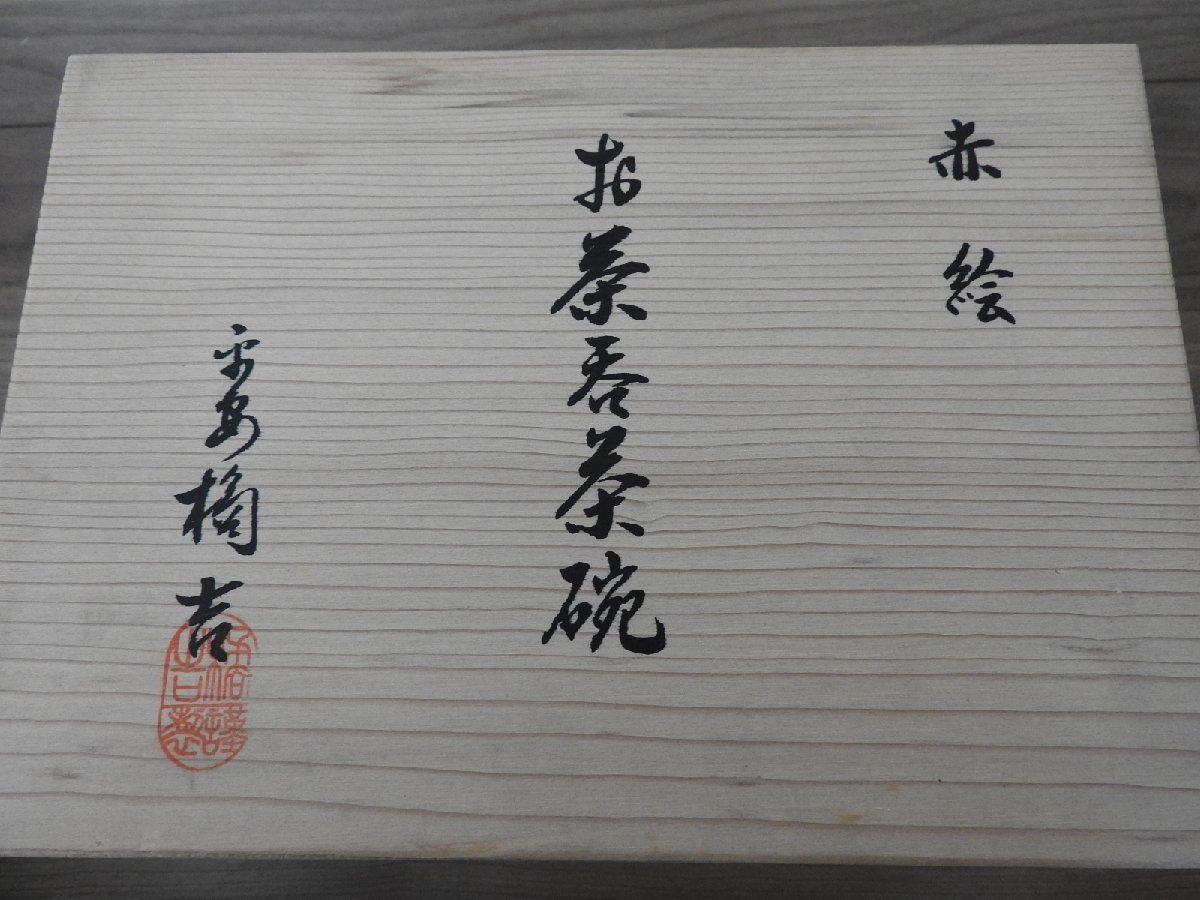 赤絵
お茶呑茶碗
平安橘吉